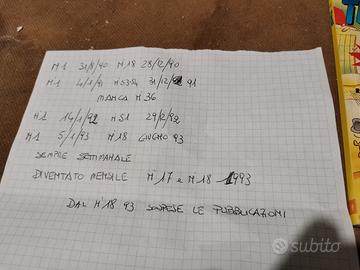 N1 31/8/90 N18 28/12/90
N1 4/1/91 N53-54 31/12/91
MANCA N36
N1 14/1/92 N51 29/2/92
N1 5/1/93 N18 GIUGNO 93
SEMPRE SETTIMANALE
DIVENTATO MENSILE N17 e N18 1993
DAL N18 93 SOSPESE LE PUBBLICAZIONI
subito